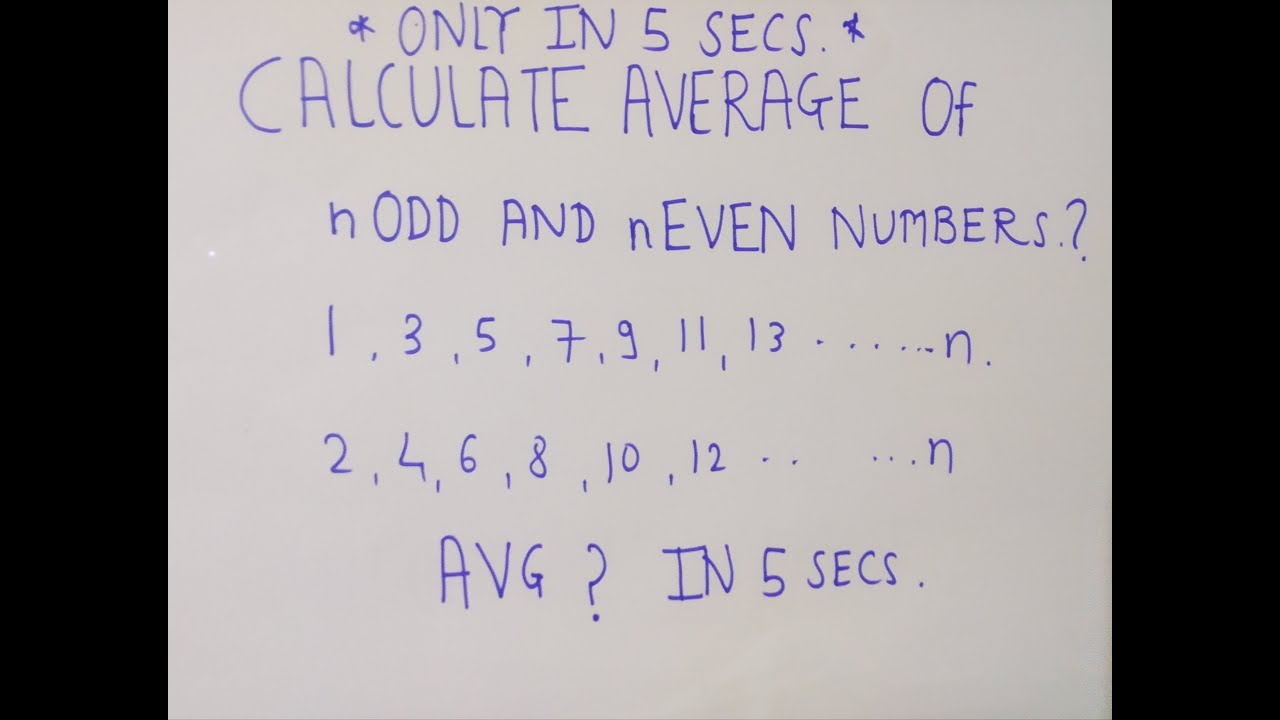 * ONLY IN 5 SECS. *
CALCULATE AVERAGE OF
n ODD AND n EVEN NUMBERS.?
1, 3, 5, 7, 9, 11, 13 ........n.
2, 4, 6, 8, 10, 12 .. ...n
AVG ? IN 5 SECS.